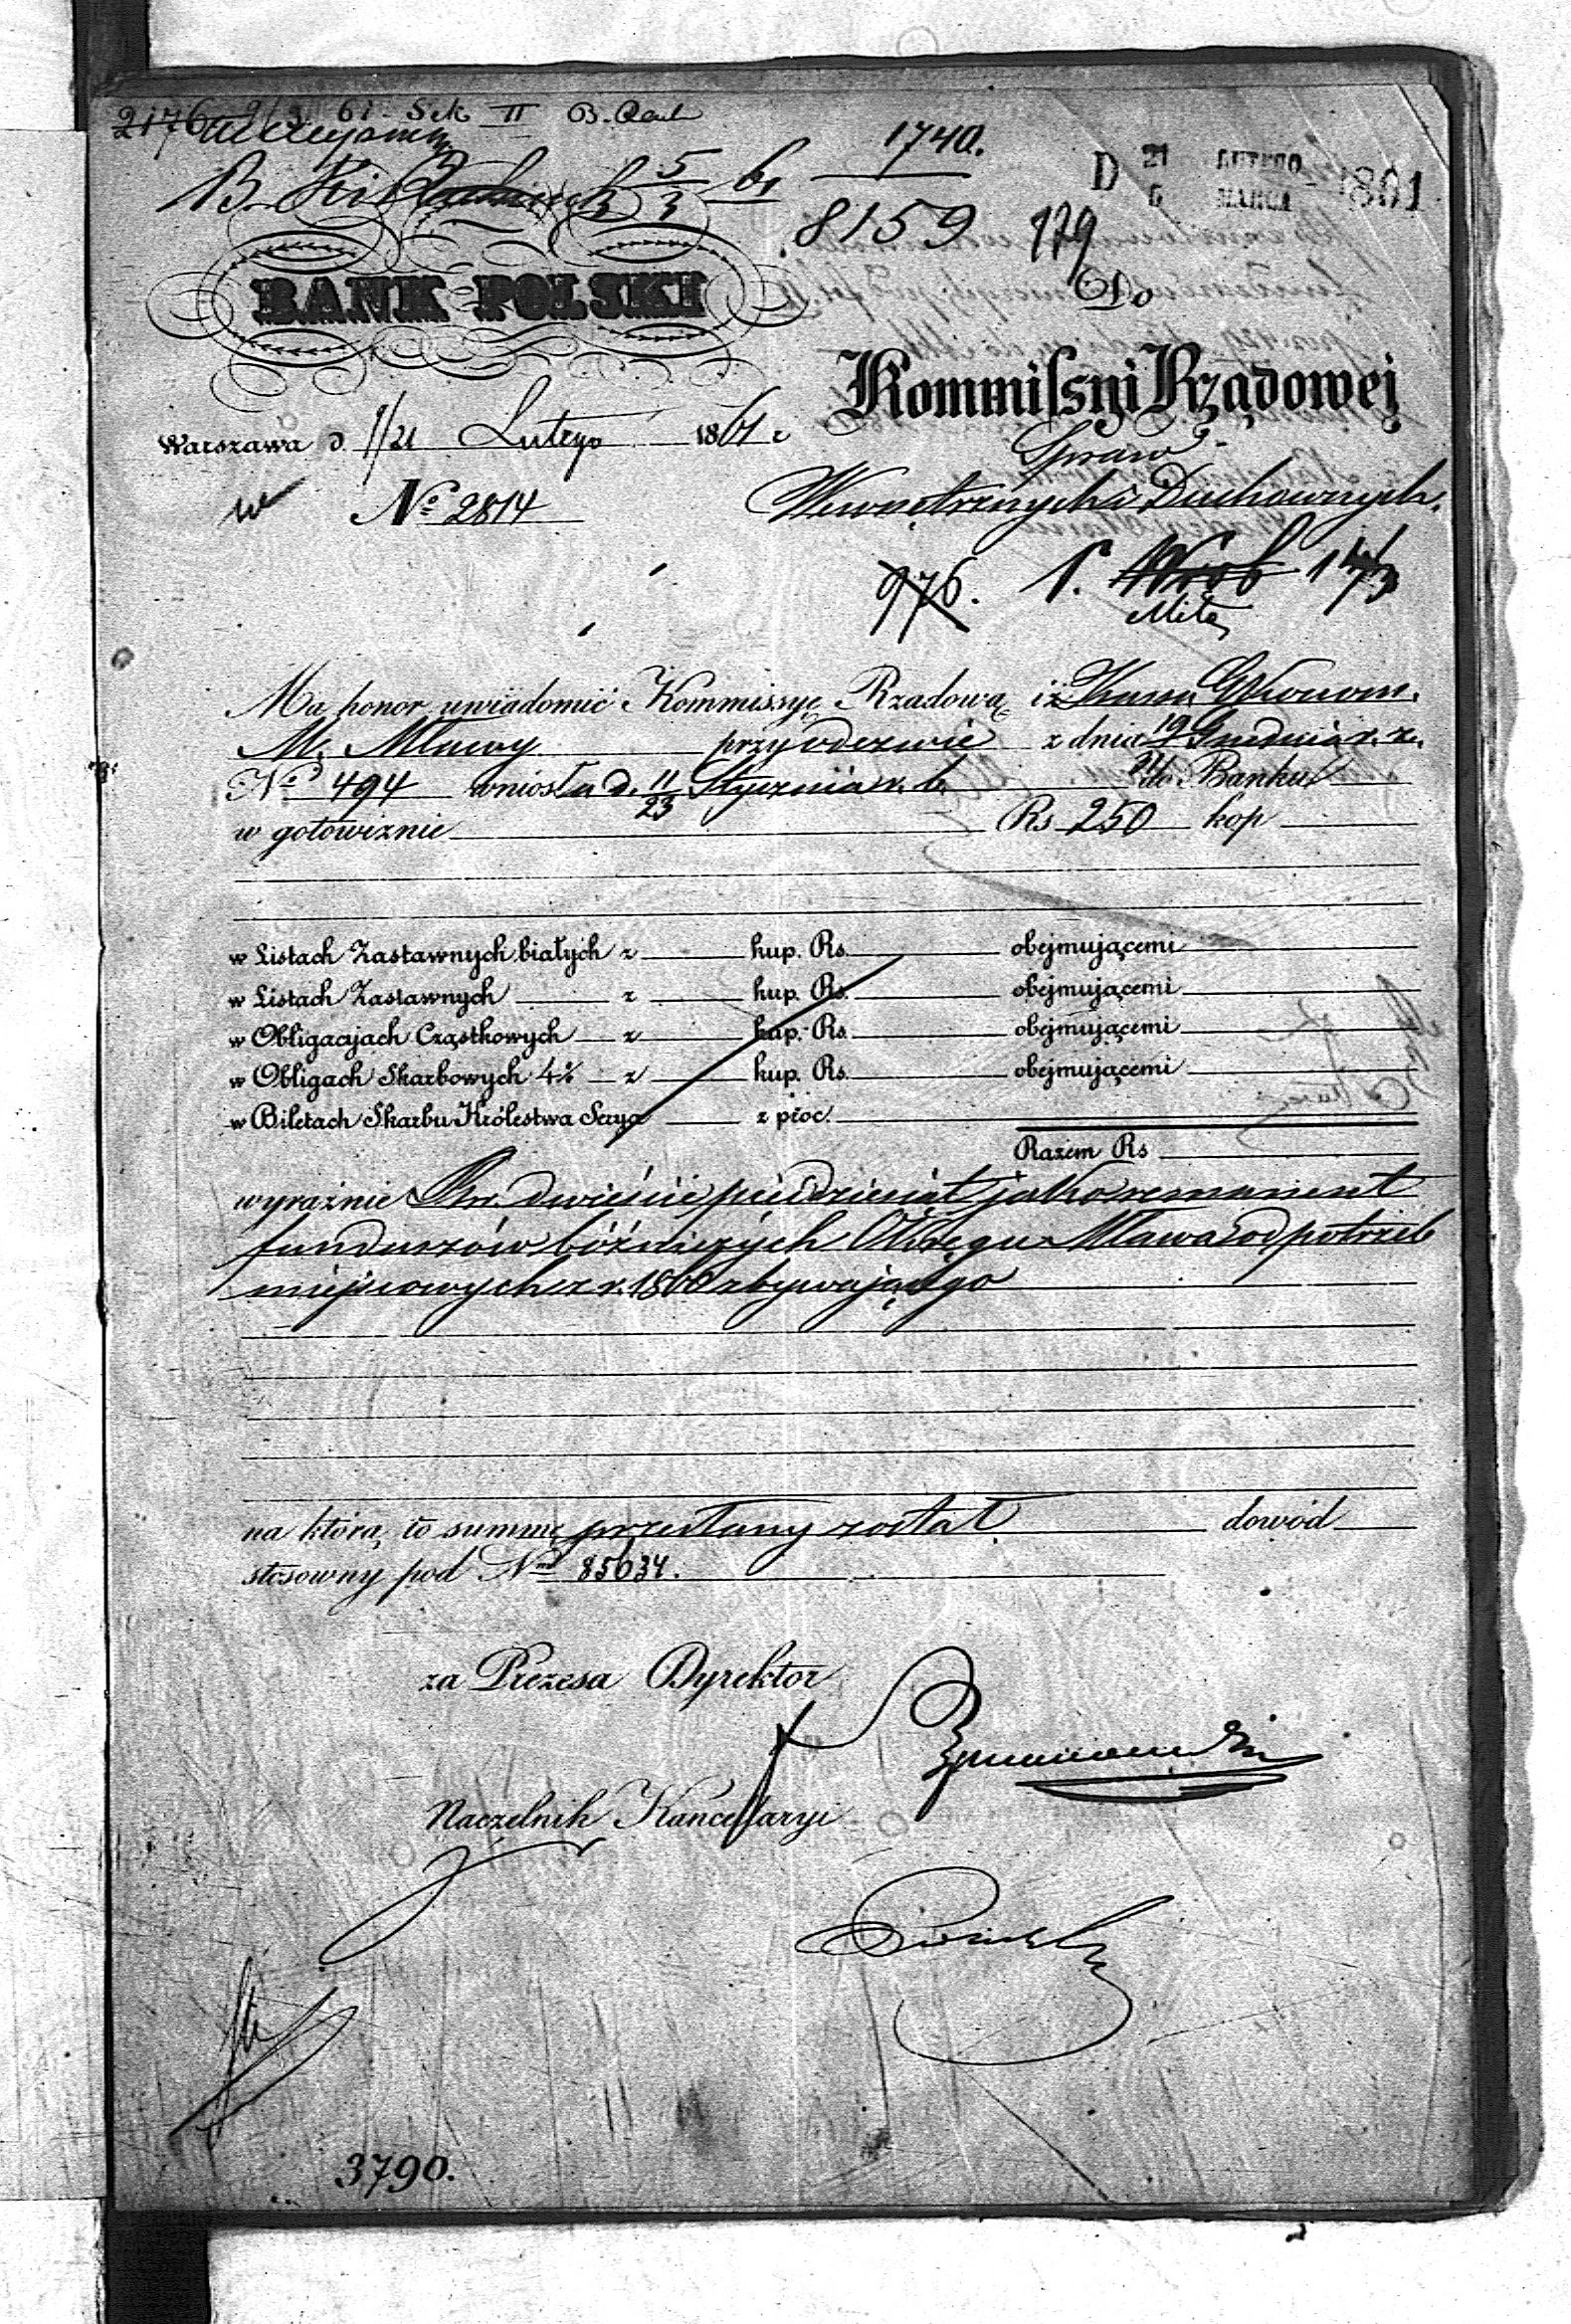 2176 9/3 61. Sek II B.
1740.
B. 5/3 61
8159 179
D 21 LUTEGO 1861
6 MARCA
BANK POLSKI
Do
Kommissyi Rządowej
Spraw
Wewnętrznych i Duchownych.
Warszawa d. 9/21 Lutego 1861 r
No 2814
976. 14/3
Ma honor uwiadomić Kommissyę Rządową iż Kassa Ekonom.
M. Mławy przy odezwie z dnia 19/31 Grudnia r. z.
No 494 wniosła d. 11/23 Stycznia r. b. do Banku
w gotowiznie Rs 250 kop
w Listach Zastawnych białych z kup. Rs. obejmującemi
w Listach Zastawnych z kup. Rs. obejmującemi
w Obligacyjach Cząstkowych z kup. Rs. obejmującemi
w Obligach Skarbowych 4% z kup. Rs. obejmującemi
w Biletach Skarbu Królestwa Serya z proc.
Razem Rs
wyraźnie Rsr. dwieście piędziesiąt jako remanent
funduszów bóźniczych Okręgu Mława od potrzeb
miejscowych z r. 1860 zbywającego
na którą to summę przesłany został dowód
stosowny pod No 85634.
za Prezesa Dyrektor
Naczelnik Kancellaryi
3790.